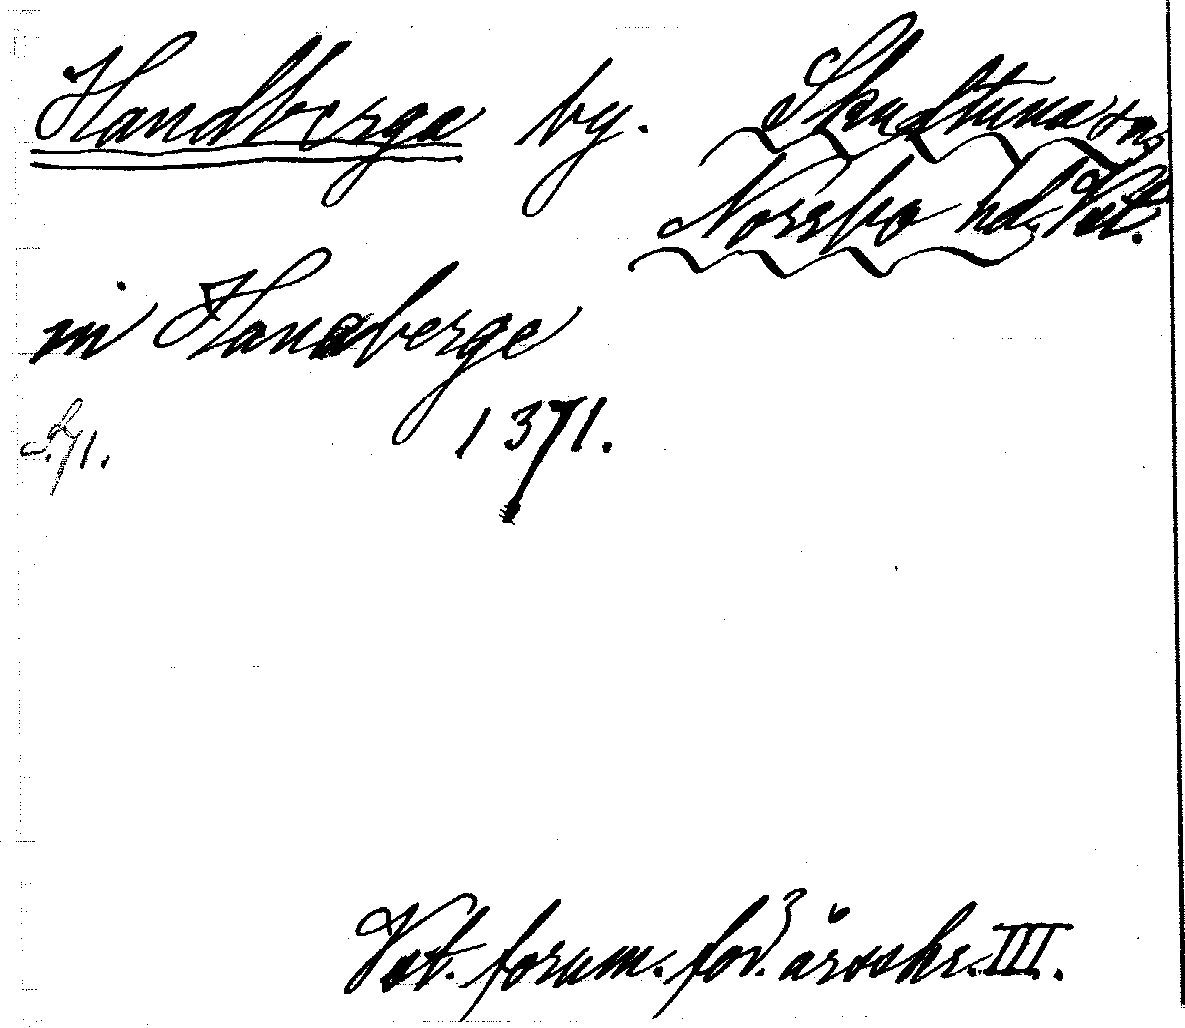 Handberge by. Skultuna sn,
Norrbo hd, Vstl.
in Handberge
1371.
S. 71.
Vst. fornm. för. årsskr. III.